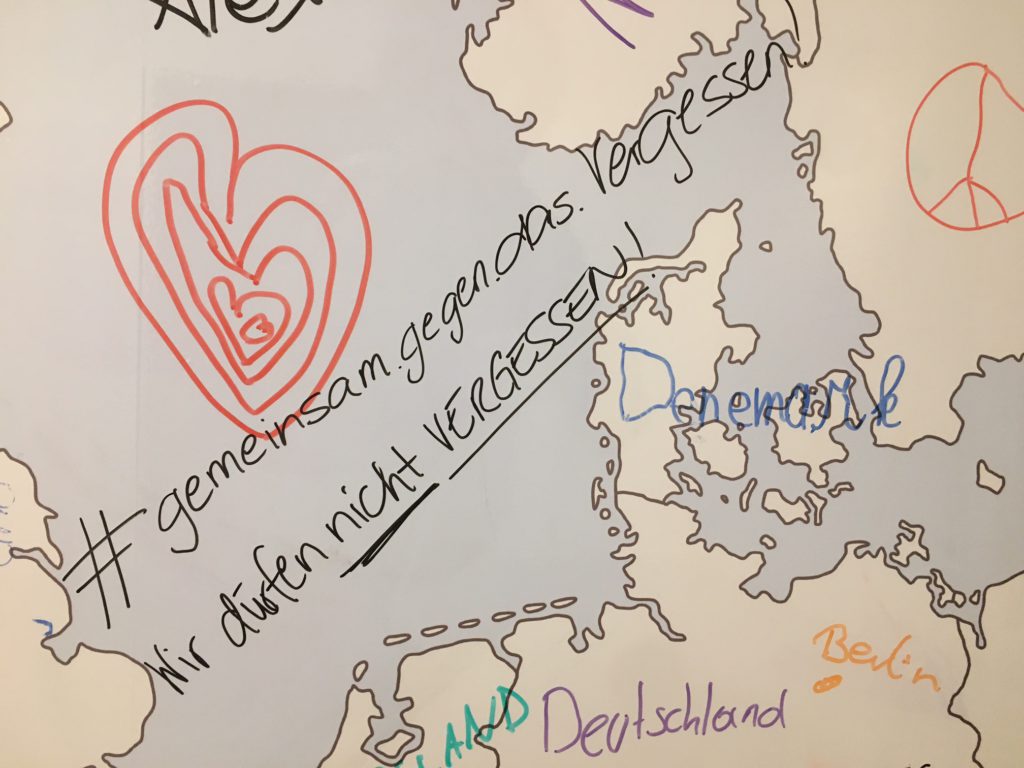 #gemeinsam.gegen.das.Vergessen
Wir dürfen nicht VERGESSEN!
Denemark
Berlin
Deutschland
LAND